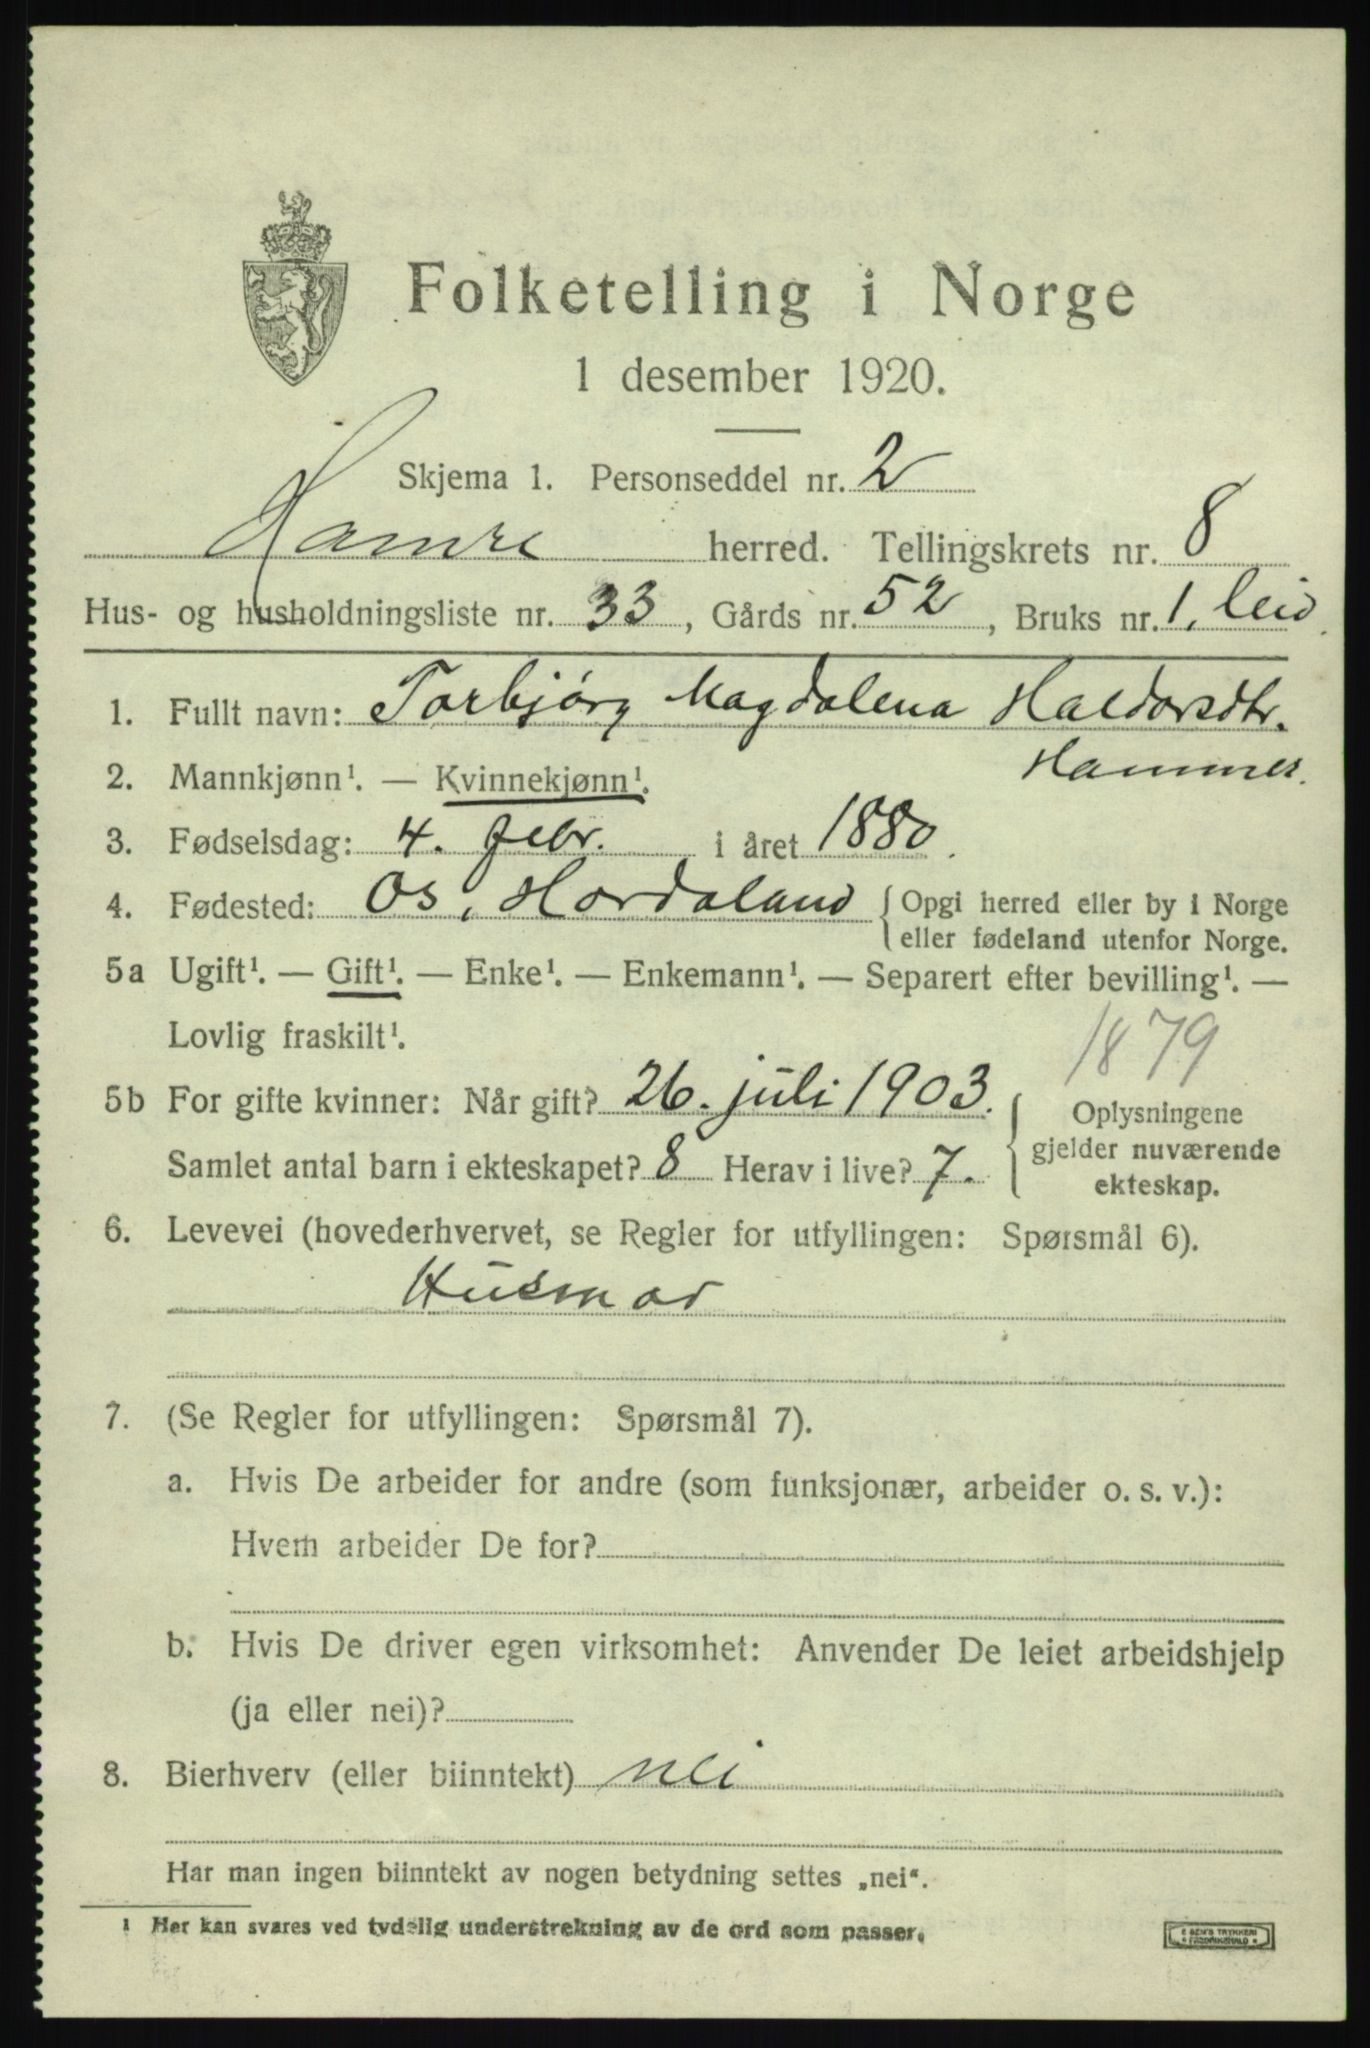 Folketelling i Norge
1 desember 1920.
Skjema 1. Personseddel nr. 2
Hamre herred. Tellingskrets nr. 8
Hus- og husholdningsliste nr. 33, Gårds nr. 52, Bruks nr. 1, leid.
1. Fullt navn: Torbjørg Magdalena Haldorsdtr.
Hammer.
2. Mannkjønn¹. — Kvinnekjønn¹.
3. Fødselsdag: 4. febr. i året 1880.
4. Fødested: Os, Hordaland { Opgi herred eller by i Norge
eller fødeland utenfor Norge.
5a Ugift¹. — Gift¹. — Enke¹. — Enkemann¹. — Separert efter bevilling¹. —
Lovlig fraskilt¹.
1879
5b For gifte kvinner: Når gift? 26. juli 1903.
Samlet antal barn i ekteskapet? 8 Herav i live? 7.
{ Oplysningene
gjelder nuværende
ekteskap.
6. Levevei (hovederhvervet, se Regler for utfyllingen: Spørsmål 6).
Husmor
7. (Se Regler for utfyllingen: Spørsmål 7).
a. Hvis De arbeider for andre (som funksjonær, arbeider o. s. v.):
Hvem arbeider De for?
b. Hvis De driver egen virksomhet: Anvender De leiet arbeidshjelp
(ja eller nei)?
8. Bierhverv (eller biinntekt) nei
Har man ingen biinntekt av nogen betydning settes „nei“.
1 Her kan svares ved tydelig understrekning av de ord som passer.